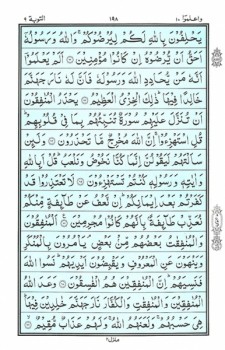 واعلموا ١٠ ١٩٨ التوبة ٩
يَحْلِفُونَ بِاللّٰهِ لَكُمْ لِيُرْضُوْكُمْ ۚ وَاللّٰهُ وَرَسُوْلُهٗٓ
اَحَقُّ اَنْ يُّرْضُوْهُ اِنْ كَانُوْا مُؤْمِنِيْنَ ۝ اَلَمْ يَعْلَمُوْٓا
اَنَّهٗ مَنْ يُّحَادِدِ اللّٰهَ وَرَسُوْلَهٗ فَاَنَّ لَهٗ نَارَ جَهَنَّمَ
خَالِدًا فِيْهَا ۭ ذٰلِكَ الْخِزْيُ الْعَظِيْمُ ۝ يَحْذَرُ الْمُنٰفِقُوْنَ
اَنْ تُنَزَّلَ عَلَيْهِمْ سُوْرَةٌ تُنَبِّئُهُمْ بِمَا فِيْ قُلُوْبِهِمْ ۭ
قُلِ اسْتَهْزِءُوْا ۚ اِنَّ اللّٰهَ مُخْرِجٌ مَّا تَحْذَرُوْنَ ۝ وَلَئِنْ
سَاَلْتَهُمْ لَيَقُوْلُنَّ اِنَّمَا كُنَّا نَخُوْضُ وَنَلْعَبُ ۭ قُلْ اَبِاللّٰهِ
وَاٰيٰتِهٖ وَرَسُوْلِهٖ كُنْتُمْ تَسْتَهْزِءُوْنَ ۝ لَا تَعْتَذِرُوْا قَدْ
كَفَرْتُمْ بَعْدَ اِيْمَانِكُمْ ۭ اِنْ نَّعْفُ عَنْ طَآئِفَةٍ مِّنْكُمْ
نُعَذِّبْ طَآئِفَةًۢ بِاَنَّهُمْ كَانُوْا مُجْرِمِيْنَ ۝ اَلْمُنٰفِقُوْنَ
وَالْمُنٰفِقٰتُ بَعْضُهُمْ مِّنْۢ بَعْضٍ ۘ يَاْمُرُوْنَ بِالْمُنْكَرِ
وَيَنْهَوْنَ عَنِ الْمَعْرُوْفِ وَيَقْبِضُوْنَ اَيْدِيَهُمْ ۭ نَسُوا اللّٰهَ
فَنَسِيَهُمْ ۭ اِنَّ الْمُنٰفِقِيْنَ هُمُ الْفٰسِقُوْنَ ۝ وَعَدَ اللّٰهُ
الْمُنٰفِقِيْنَ وَالْمُنٰفِقٰتِ وَالْكُفَّارَ نَارَ جَهَنَّمَ خٰلِدِيْنَ فِيْهَا ۭ
هِيَ حَسْبُهُمْ ۚ وَلَعَنَهُمُ اللّٰهُ ۚ وَلَهُمْ عَذَابٌ مُّقِيْمٌ ۝
منزل ٢